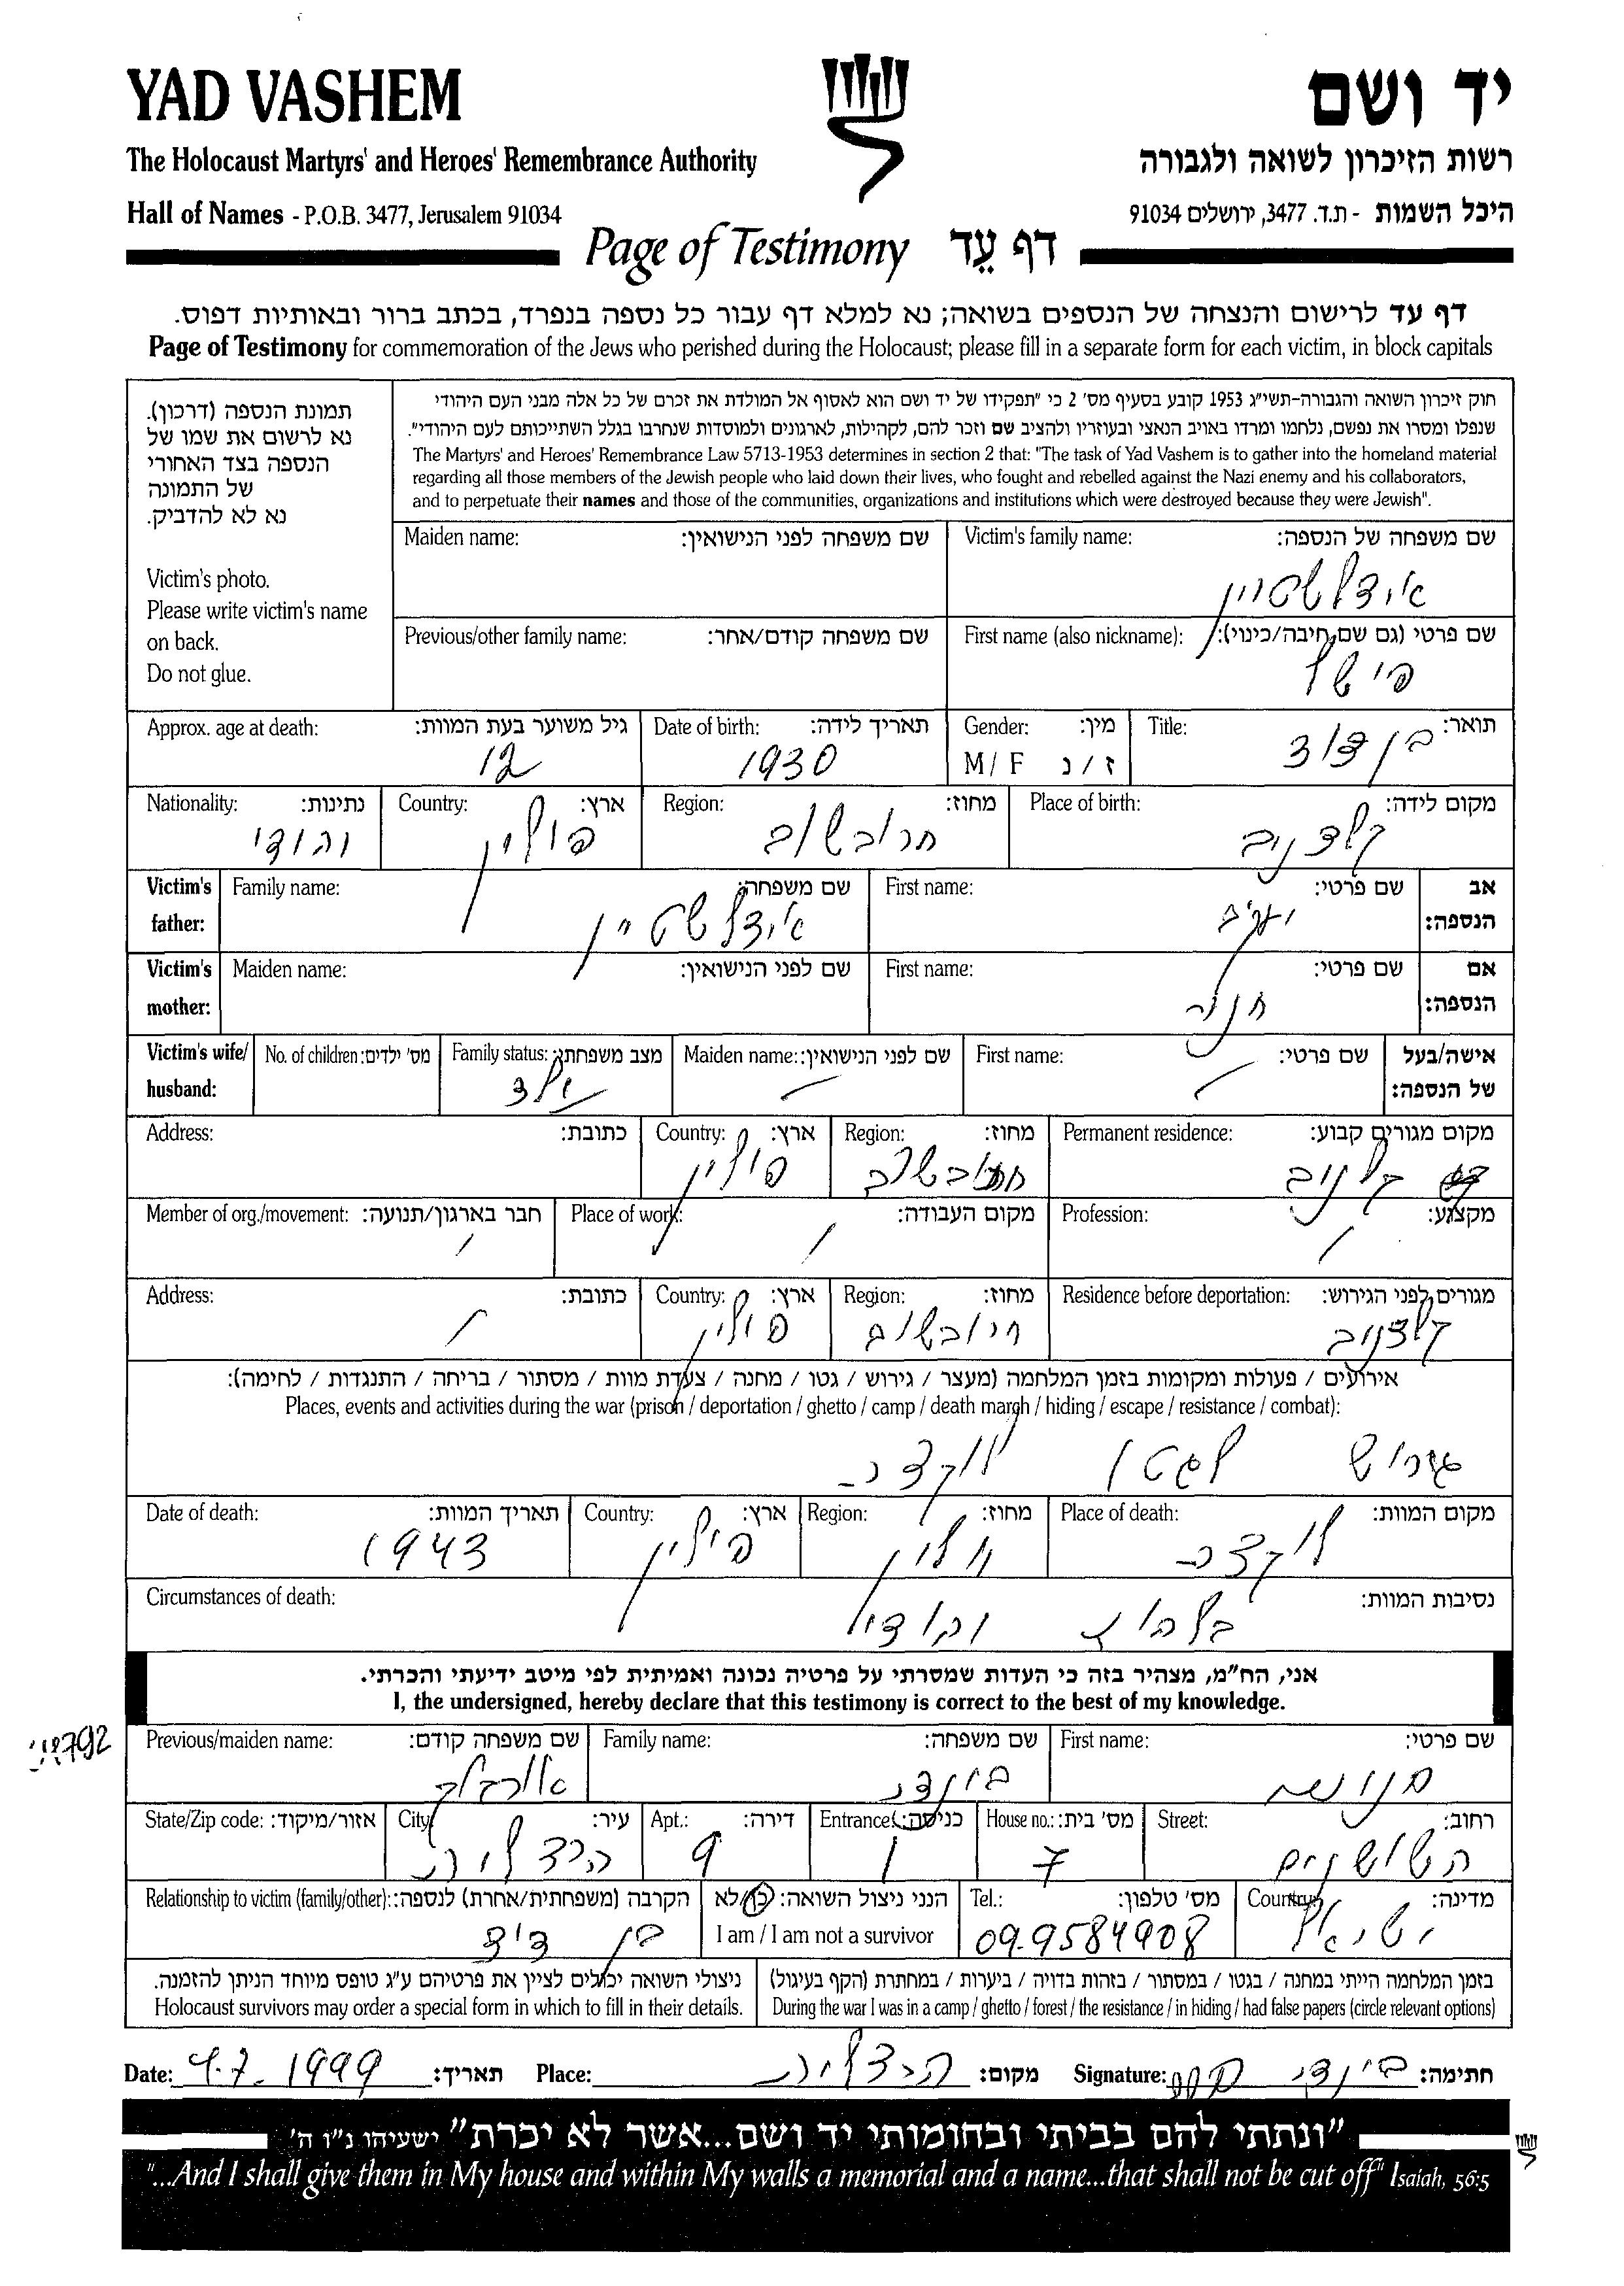 YAD VASHEM
יד ושם
The Holocaust Martyrs' and Heroes' Remembrance Authority
רשות הזיכרון לשואה ולגבורה
Hall of Names - P.O.B. 3477, Jerusalem 91034
היכל השמות - ת.ד. 3477, ירושלים 91034
Page of Testimony דף עֵד
דף עד לרישום והנצחה של הנספים בשואה; נא למלא דף עבור כל נספה בנפרד, בכתב ברור ובאותיות דפוס.
Page of Testimony for commemoration of the Jews who perished during the Holocaust; please fill in a separate form for each victim, in block capitals
תמונת הנספה (דרכון).
נא לרשום את שמו של
הנספה בצד האחורי
של התמונה
נא לא להדביק.
Victim's photo.
Please write victim's name
on back.
Do not glue.
חוק זיכרון השואה והגבורה-תשי"ג 1953 קובע בסעיף מס' 2 כי "תפקידו של יד ושם הוא לאסוף אל המולדת את זכרם של כל אלה מבני העם היהודי
שנפלו ומסרו את נפשם, נלחמו ומרדו באויב הנאצי ובעוזריו ולהציב שם וזכר להם, לקהילות, לארגונים ולמוסדות שנחרבו בגלל השתייכותם לעם היהודי".
The Martyrs' and Heroes' Remembrance Law 5713-1953 determines in section 2 that: "The task of Yad Vashem is to gather into the homeland material
regarding all those members of the Jewish people who laid down their lives, who fought and rebelled against the Nazi enemy and his collaborators,
and to perpetuate their names and those of the communities, organizations and institutions which were destroyed because they were Jewish".
Victim's family name: שם משפחה של הנספה:
אידלשטיין
Maiden name: שם משפחה לפני הנישואין:
First name (also nickname): שם פרטי (גם שם חיבה/כינוי):
פישל
Previous/other family name: שם משפחה קודם/אחר:
Title: תואר:
בן דוד
Gender: מין:
M / F ז / נ
Date of birth: תאריך לידה:
1930
Approx. age at death: גיל משוער בעת המוות:
12
Place of birth: מקום לידה:
Region: מחוז:
חרובשוב
Country: ארץ:
פולין
Nationality: נתינות:
יהודי
Victim's father: אב הנספה:
First name: שם פרטי:
יעקב
Family name: שם משפחה:
אידלשטיין
Victim's mother: אם הנספה:
First name: שם פרטי:
חנה
Maiden name: שם לפני הנישואין:
Victim's wife/ husband: אישה/בעל של הנספה:
First name: שם פרטי:
Maiden name: שם לפני הנישואין:
Family status: מצב משפחתי:
ילד
No. of children: מס' ילדים:
Permanent residence: מקום מגורים קבוע:
Region: מחוז:
Country: ארץ:
פולין
Address: כתובת:
Profession: מקצוע:
Place of work: מקום העבודה:
Member of org./movement: חבר בארגון/תנועה:
Residence before deportation: מגורים לפני הגירוש:
Region: מחוז:
חרובשוב
Country: ארץ:
פולין
Address: כתובת:
אירועים / פעולות ומקומות בזמן המלחמה (מעצר / גירוש / גטו / מחנה / צעדת מוות / מסתור / בריחה / התנגדות / לחימה):
Places, events and activities during the war (prison / deportation / ghetto / camp / death march / hiding / escape / resistance / combat):
גרוש לגטו
Place of death: מקום המוות:
Region: מחוז:
Country: ארץ:
פולין
Date of death: תאריך המוות:
1943
Circumstances of death: נסיבות המוות:
אני, הח"מ, מצהיר בזה כי העדות שמסרתי על פרטיה נכונה ואמיתית לפי מיטב ידיעתי והכרתי.
I, the undersigned, hereby declare that this testimony is correct to the best of my knowledge.
First name: שם פרטי:
Family name: שם משפחה:
בינדר
Previous/maiden name: שם משפחה קודם:
Street: רחוב:
השושנים
House no.: מס' בית:
7
Entrance: כניסה:
1
Apt.: דירה:
9
City: עיר:
הרצליה
State/Zip code: אזור/מיקוד:
Country: מדינה:
ישראל
Tel.: מס' טלפון:
09-9584908
הנני ניצול השואה: כן/לא
I am / I am not a survivor
Relationship to victim (family/other): הקרבה (משפחתית/אחרת) לנספה:
בן דוד
בזמן המלחמה הייתי במחנה / בגטו / במסתור / בזהות בדויה / ביערות / במחתרת (הקף בעיגול)
During the war I was in a camp / ghetto / forest / the resistance / in hiding / had false papers (circle relevant options)
ניצולי השואה יכולים לציין את פרטיהם ע"ג טופס מיוחד הניתן להזמנה.
Holocaust survivors may order a special form in which to fill in their details.
Date: 4.7.1999 תאריך: Place: הרצליה מקום: Signature: בינדר חתימה:
"ונתתי להם בביתי ובחומותי יד ושם...אשר לא יכרת" ישעיהו נ"ו ה'
"...And I shall give them in My house and within My walls a memorial and a name...that shall not be cut off" Isaiah, 56:5